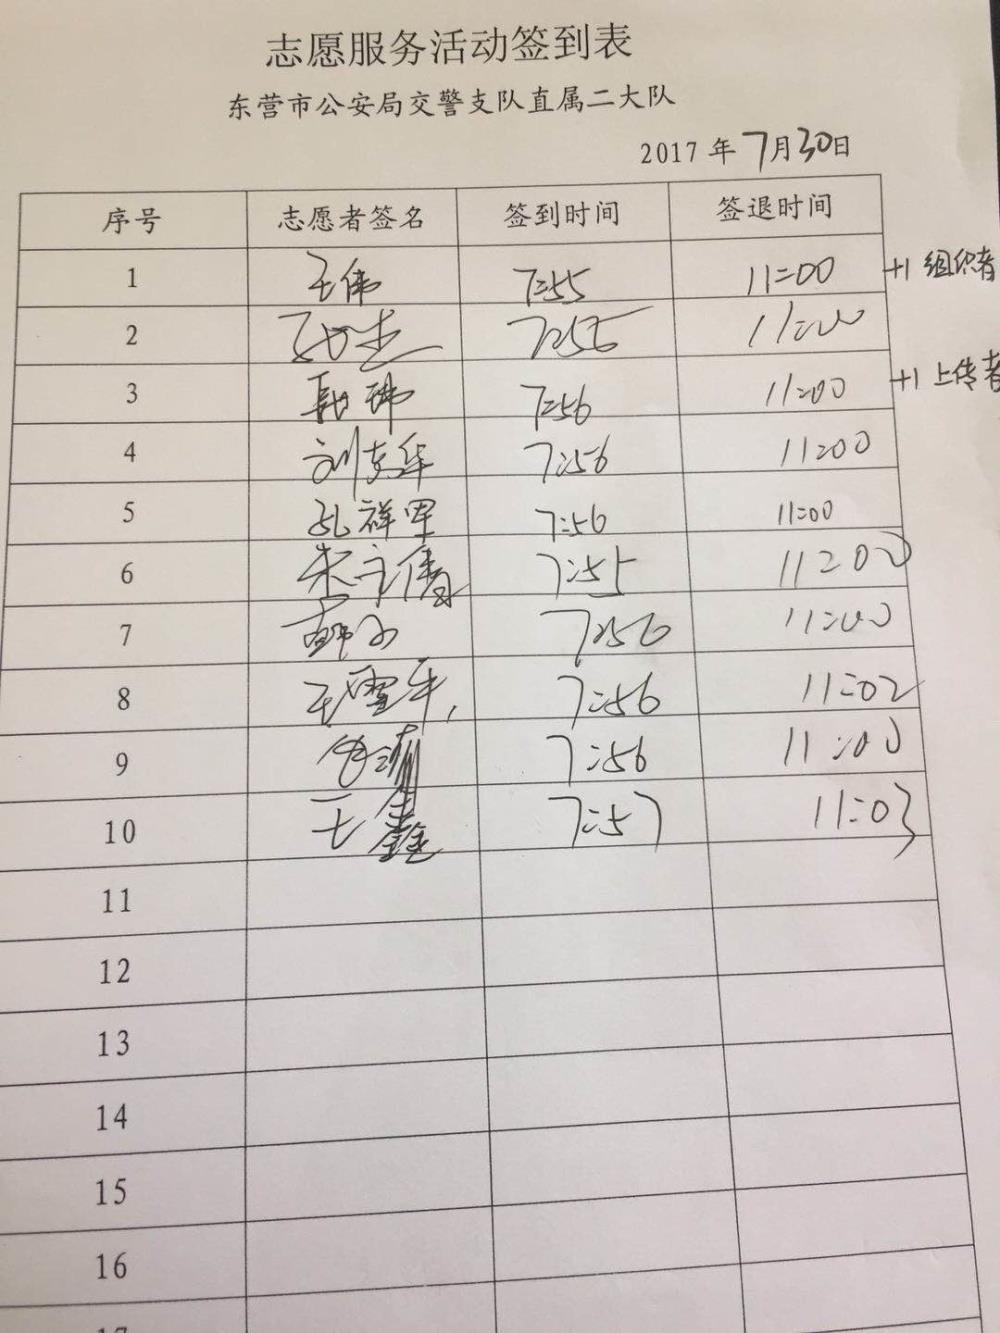 志愿服务活动签到表
东营市公安局交警支队直属二大队
2017 年 7月30日
序号 志愿者签名 签到时间 签退时间
1 王伟 7:55 11:00 +1 组织者
2 7:56 11:00
3 7:56 11:00 +1 上传者
4 刘东华 7:56 11:00
5 孔祥军 7:56 11:00
6 7:55 11:00
7 7:56 11:00
8 王雪平 7:56 11:02
9 7:56 11:00
10 王鑫 7:57 11:03
11
12
13
14
15
16
17